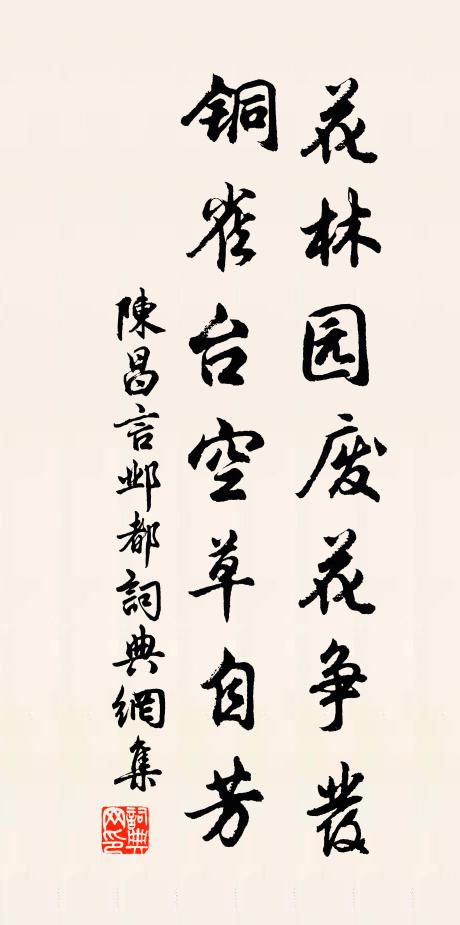 花林园废花争發
铜雀台空草自芳
陳昌言邺都詞典網集
詞典网印